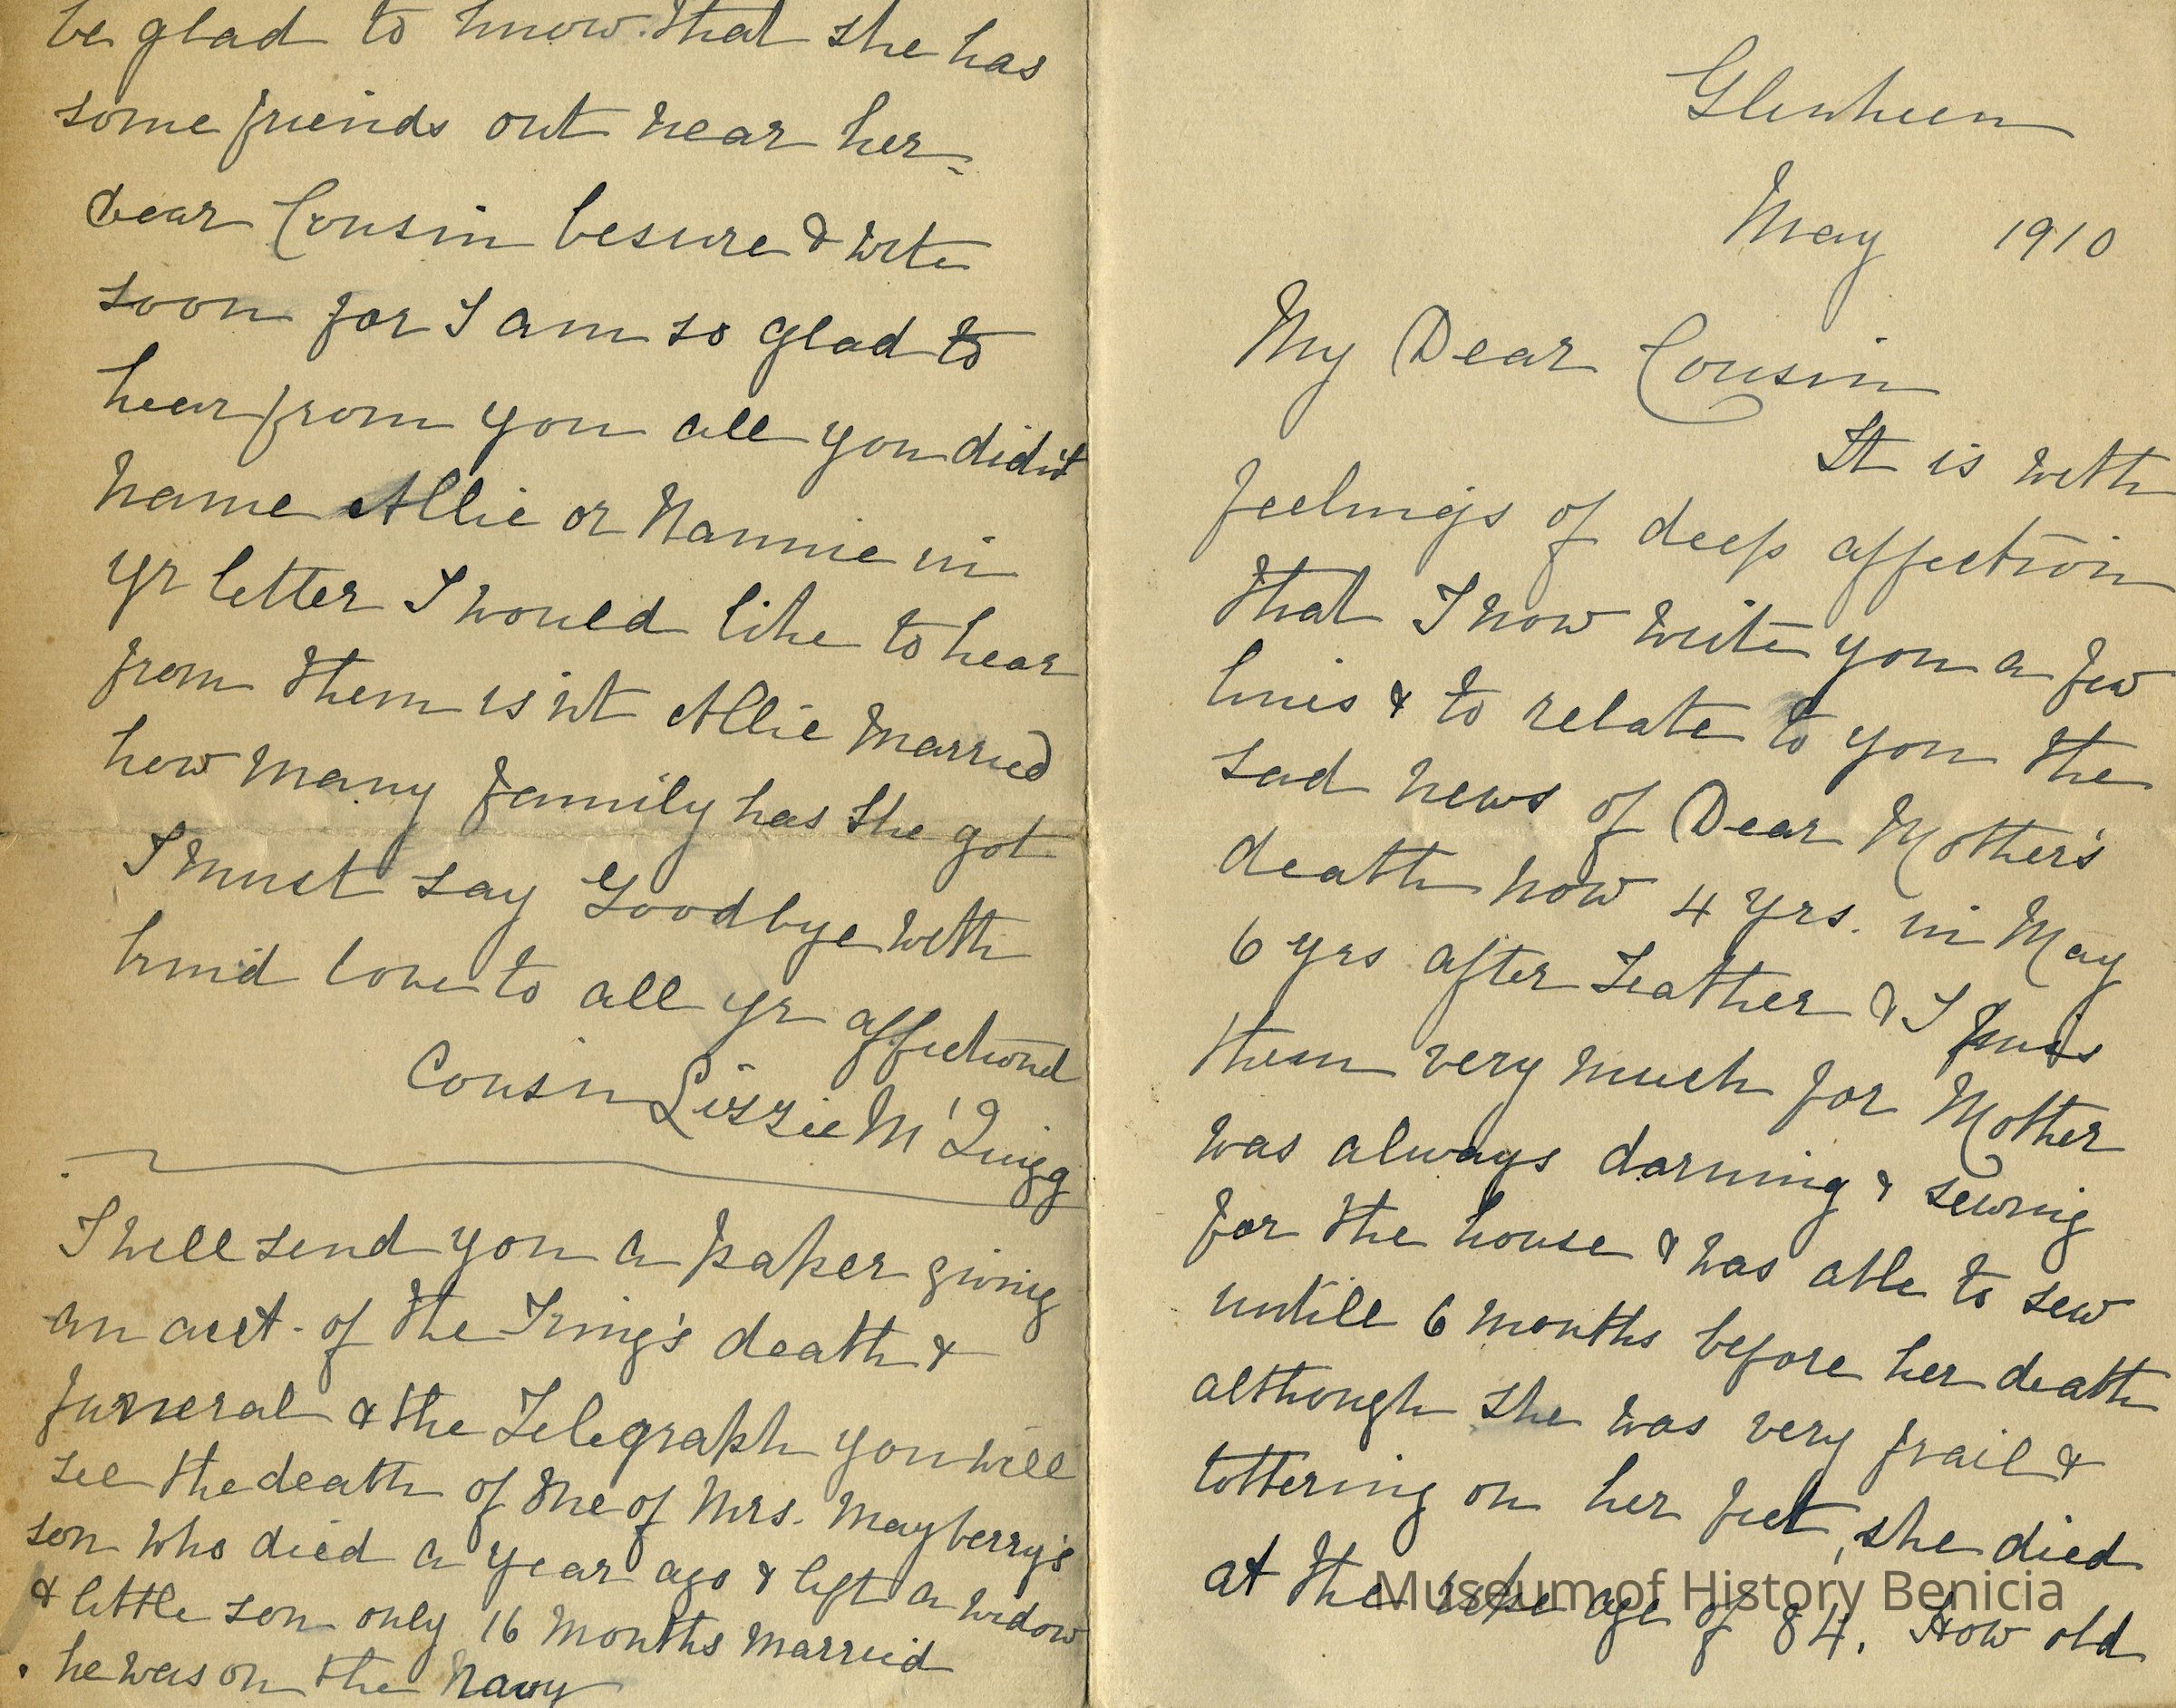 be glad to know that she has
some friends out near her=
dear Cousin besure & write
soon for I am so glad to
hear from you all you didn't
name Allie or Nannie in
yr letter I would like to hear
from them is nt Allie Married
how many family has she got
I must say Goodbye with
kind love to all yr affectiond
Cousin Lizzie M'Quigg
I will send you a paper giving
an acct. of the King's death &
funeral & the Telegraph you will
see the death of one of Mrs. Mayberry's
son who died a year ago & left a widow
& little son only 16 months married
he was on the Navy
Glenkeen
May 1910
My Dear Cousin
It is with
feelings of deep affection
that I now write you a few
lines & to relate to you the
sad news of Dear Mother's
death now 4 yrs. in May
6 yrs after & I miss
them very much for Mother
was always darning & sewing
for the house & was able to sew
untill 6 months before her death
although she was very frail &
tottering on her feet, she died
at the ripe age of 84. How old
Museum of History Benicia